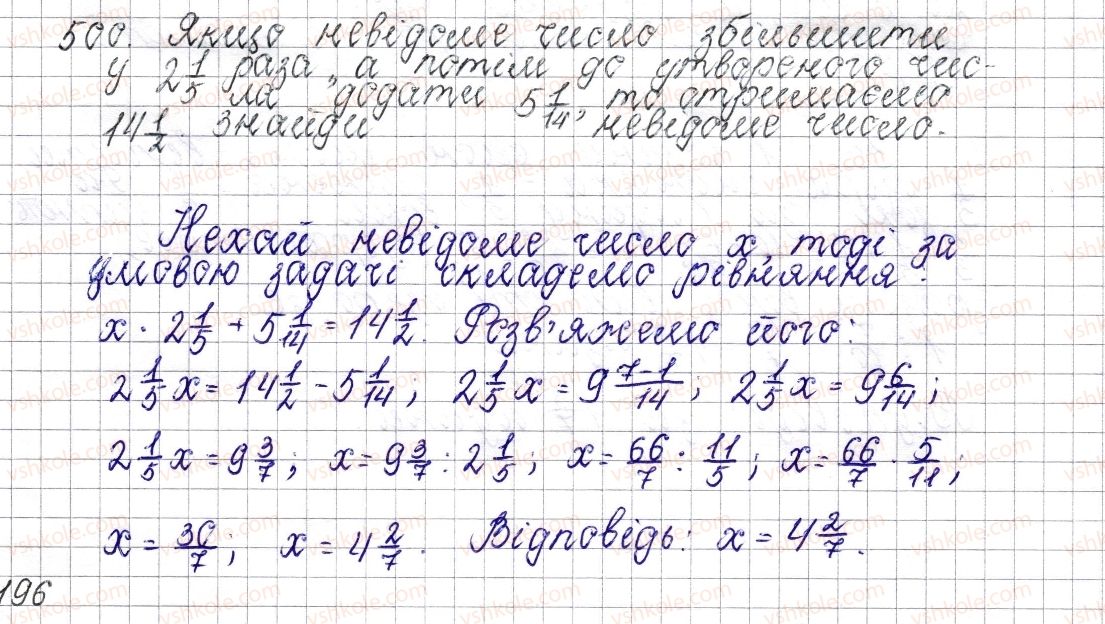 500. Якщо невідоме число збільшити
у 2 1/5 раза, а потім до утвореного чис-
ла додати 5 1/14, то отримаємо
14 1/2. Знайди невідоме число.
Нехай невідоме число x, тоді за
умовою задачі складемо рівняння:
x · 2 1/5 + 5 1/14 = 14 1/2. Розв'яжемо його:
2 1/5 x = 14 1/2 - 5 1/14; 2 1/5 x = 9 7-1/14; 2 1/5 x = 9 6/14;
2 1/5 x = 9 3/7; x = 9 3/7 : 2 1/5; x = 66/7 : 11/5; x = 66/7 · 5/11;
x = 30/7; x = 4 2/7. Відповідь: x = 4 2/7.
196